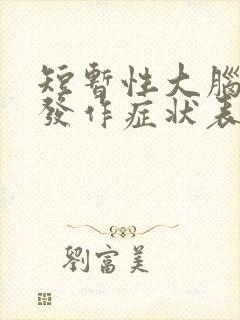 短暫性大腦
發作症狀表
劉富美